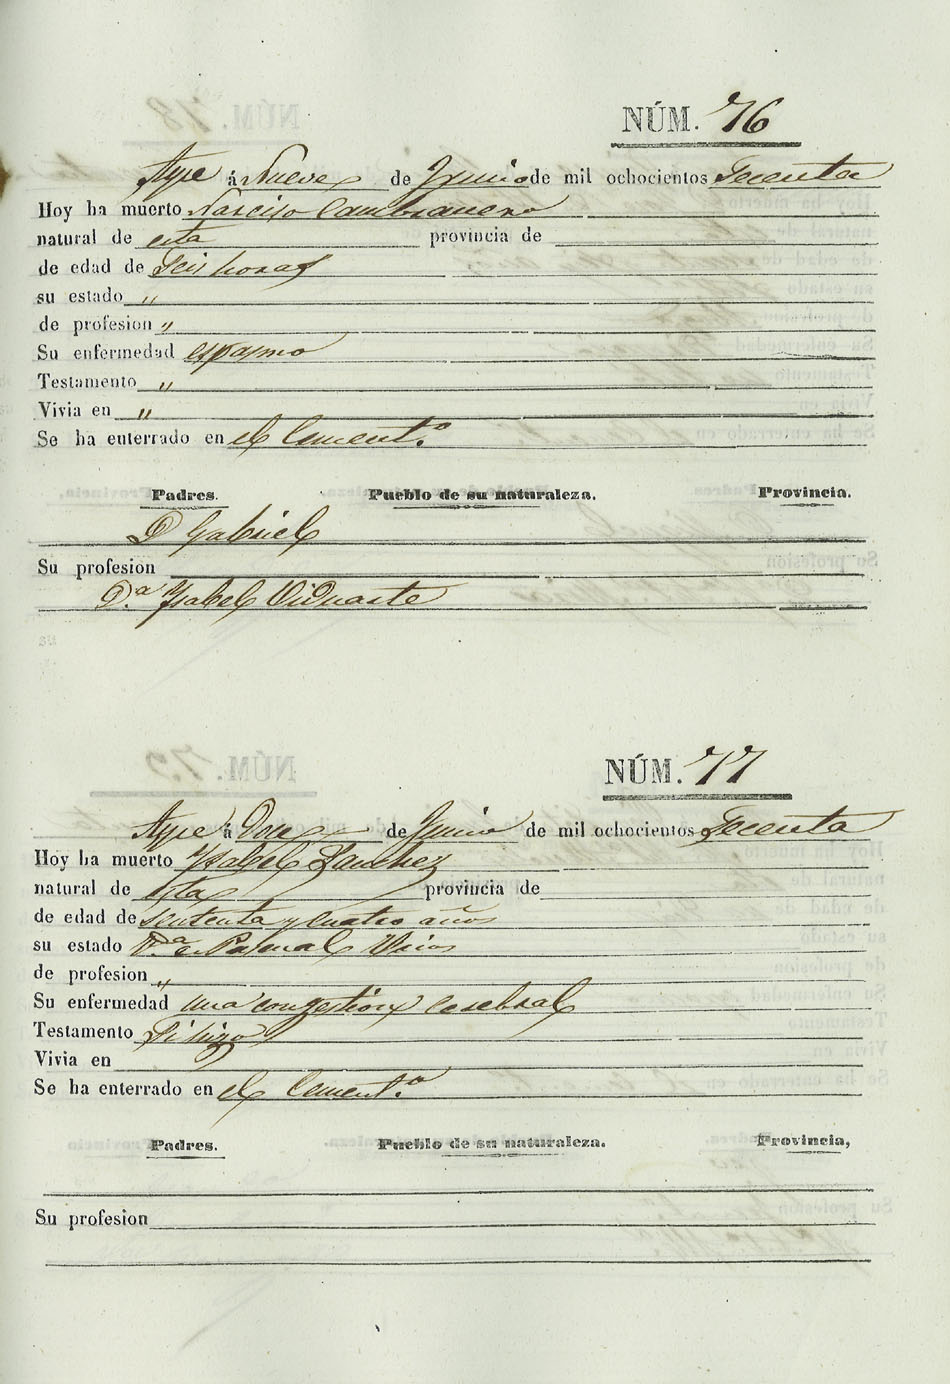 NÚM. 76
Aspe á Nueve de Junio de mil ochocientos Secenta
Hoy ha muerto Narciso Cambronero
natural de esta provincia de
de edad de Seis horas
su estado "
de profesion "
Su enfermedad espasmo
Testamento "
Vivia en "
Se ha enterrado en el Cement.º
Padres. Pueblo de su naturaleza. Provincia.
D Gabriel
Su profesion
D.ª Ysabel
NÚM. 77
Aspe á Doce de Junio de mil ochocientos Secenta
Hoy ha muerto Ysabel Sanchez
natural de Esta provincia de
de edad de setenta y cuatro años
su estado V.ª de Pascual
de profesion "
Su enfermedad una congestion cerebral
Testamento Si hizo
Vivia en
Se ha enterrado en el Cement.º
Padres. Pueblo de su naturaleza. Provincia,
Su profesion